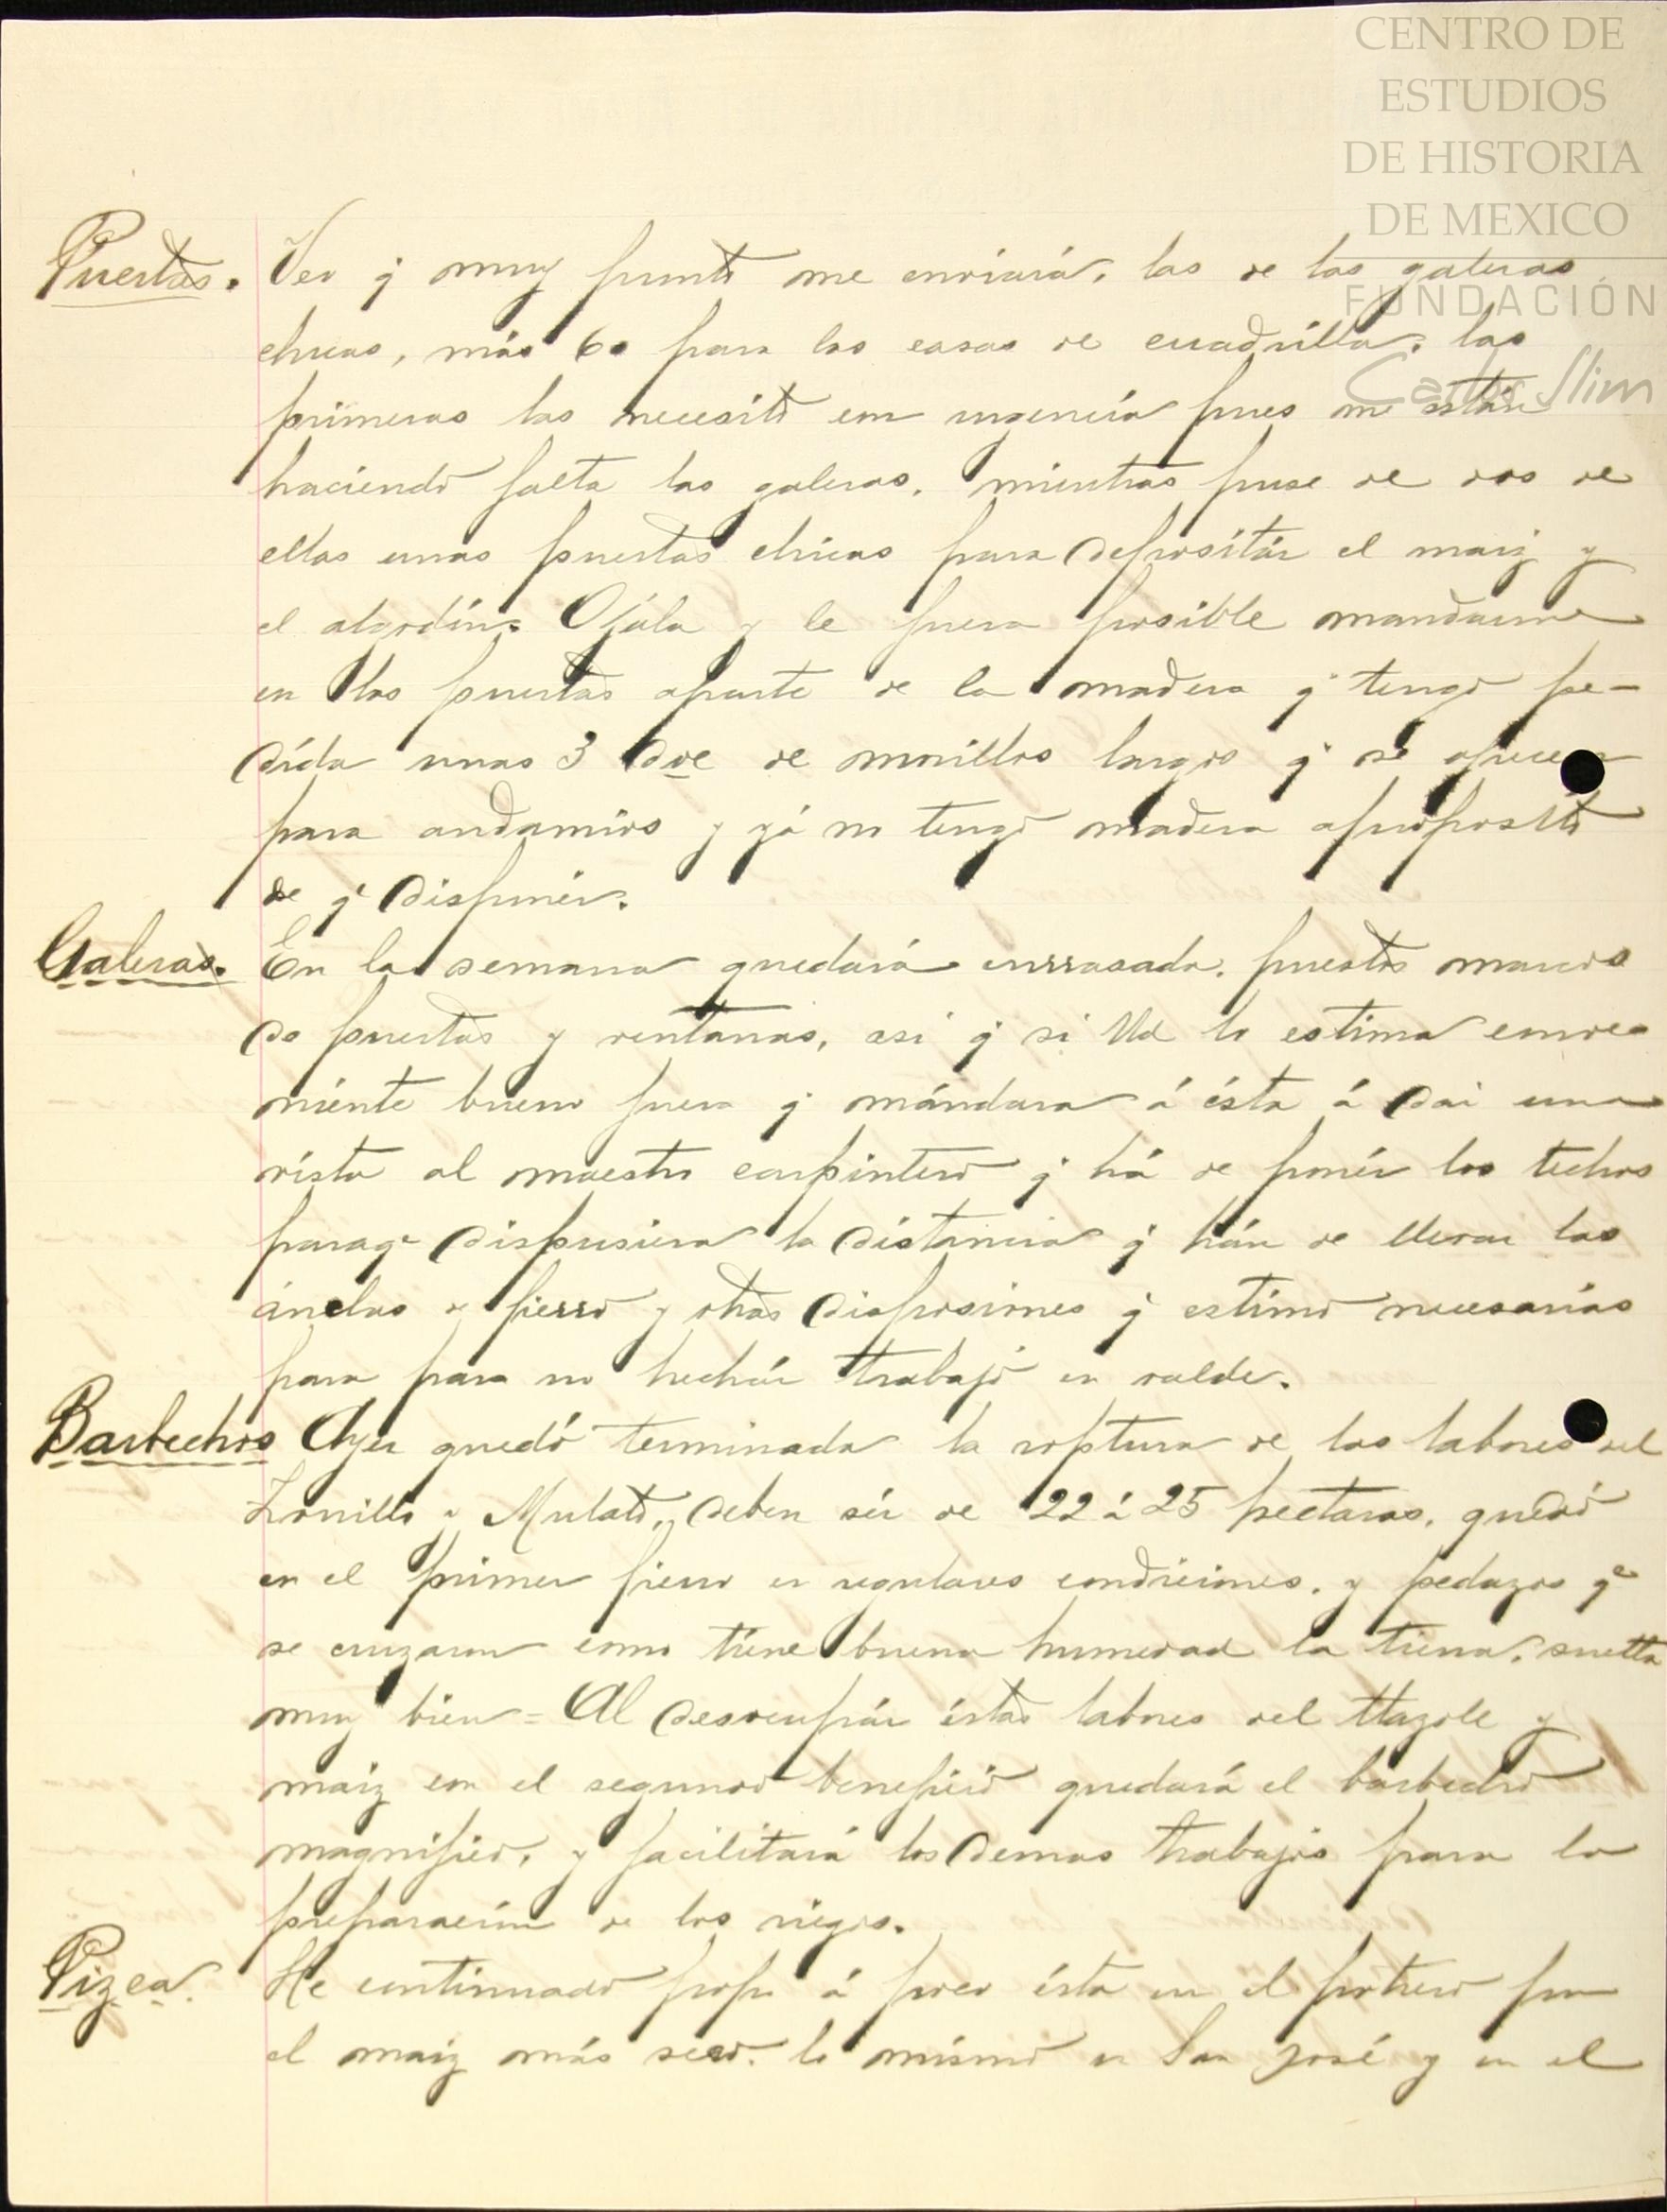 CENTRO DE
ESTUDIOS
DE HISTORIA
DE MEXICO
FUNDACIÓN
Carlos Slim
Puertas. Veo q muy pronto me enviará, las de las galeras
chicas, más 60 para las casas de cuadrilla, las
primeras las necesito con urgencia pues me están
haciendo falta las galeras, mientras puse de dos de
ellas unas puertas chicas para depositár el maiz y
el algodón. Ojala y le fuera posible mandarme
en las puertas aparte de la madera q tengo pe-
dída unas 3 doe de morillos largos q se ofrecen
para andamios y yá no tengo madera aproposito
de q disponér.
Galeras. En la semana quedará enrrasada, puestos marcos
de puertas y ventanas, asi q si Ud lo estima conve-
niénte bueno fuera q mándara á ésta á dar una
vista al maestro carpintero q há de ponér los techos
paraq dispusiera la distancia q hán de llevar las
ánclas de fierro y otras disposiones q estimo necesarias
para para no hechár trabajo en valde.
Barbechos Ayer quedó terminada la roptura de las labores del
Zorrillo y Mulato, deben sér de 22 á 25 hectaras, quedó
en el primer fierro en regulares condiciones, y pedazos qe
se cruzaron como tiéne buena humedad la tierra, suelta
muy bien = Al desocupár éstas labores del tlazole y
maiz con el segundo beneficio quedará el barbecho
magnifico, y facilitará los demas trabajos para la
preparación de los riegos.
Pizca. He continuado poco á poco ésta en el potrero por
el maiz más seco, lo mismo en San José y en el